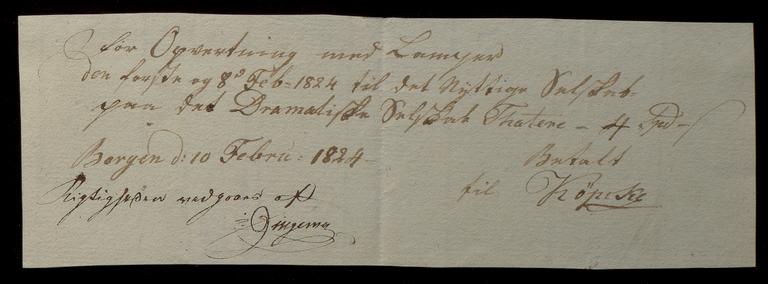 for Opvertning med Lamper
den første og 8de Feb= 1824 til det Nyttige Selskab=
paa det Dramatiske Selskab Theater – 4 Spd –
Bergen d: 10 Febru: 1824 –
Betalt
til Köpcke
Rigtigheden vedgaaes af